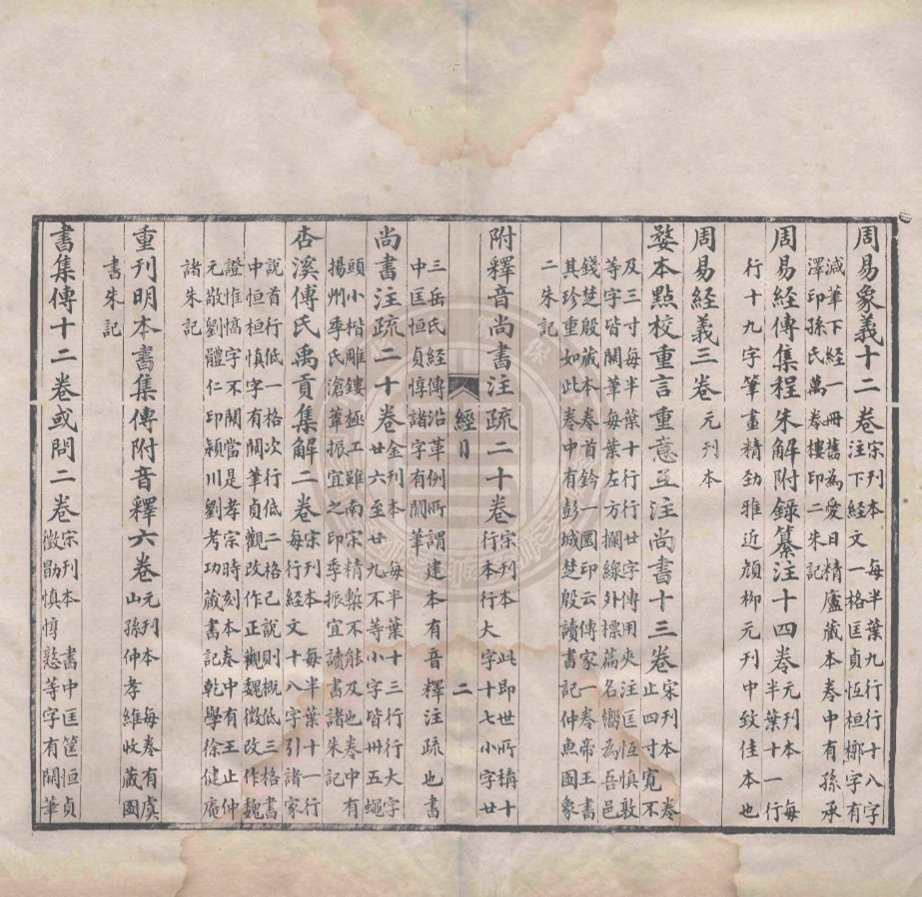 周易象義十二卷
宋刊本每半葉九行行十八字
注下經文一格匡貞恆桓槨字有
減筆下經一冊舊為愛日精廬藏本卷中有孫承
澤印孫氏萬卷樓印二朱記
周易經傳集程朱解附錄纂注十四卷
元刊本每
半葉十一行
行十九字筆畫精勁雅近顏柳元刊中致佳本也
周易經義三卷
元刊本
婺本點校重言重意互注尚書十三卷
宋刊本卷
止四寸寬不
及三寸每半葉十行行廿字傳用夾注匡恆慎敦
等字皆闕筆每葉左方攔線外標篇名嚮為吾邑
錢楚殷藏本卷首鈐一國印云傳家一卷帝王書
其珍重如此卷中有彭城楚殷讀書記仲魚圖象
二朱記
附釋音尚書注疏二十卷
宋刊本此即世所稱十
行本行大字十七小字廿
經目 二
三岳氏經傳沿革例所謂建本有音釋注疏也書
中匡恒貞惇諸字有闕筆
尚書注疏二十卷
金刊本每半葉十三行行大字
廿六至廿九不等小字皆卅五蠅
頭小楷雕鏤極工雖南宋精槧不能及也卷中有
揚州季氏滄葦振宜之印季振宜讀書諸朱記
杏溪傅氏禹貢集解二卷
宋刊本每半葉十一行
每行經文十八字引諸家
說首行低一格次行低二格己說則概低三格書
中恒桓慎字有闕筆貞觀改作正觀魏徵改作魏
證惟惇字不闕當是孝宗時刻本卷中有王止仲
元敬劉體仁印潁川劉考功藏書記乾學徐健庵
諸朱記
重刊明本書集傳附音釋六卷
元刊本每卷有虞
山孫仲孝維收藏圖
書朱記
書集傳十二卷或問二卷
宋刊本書中匡筐恒貞
徵勗慎惇慤等字有闕筆